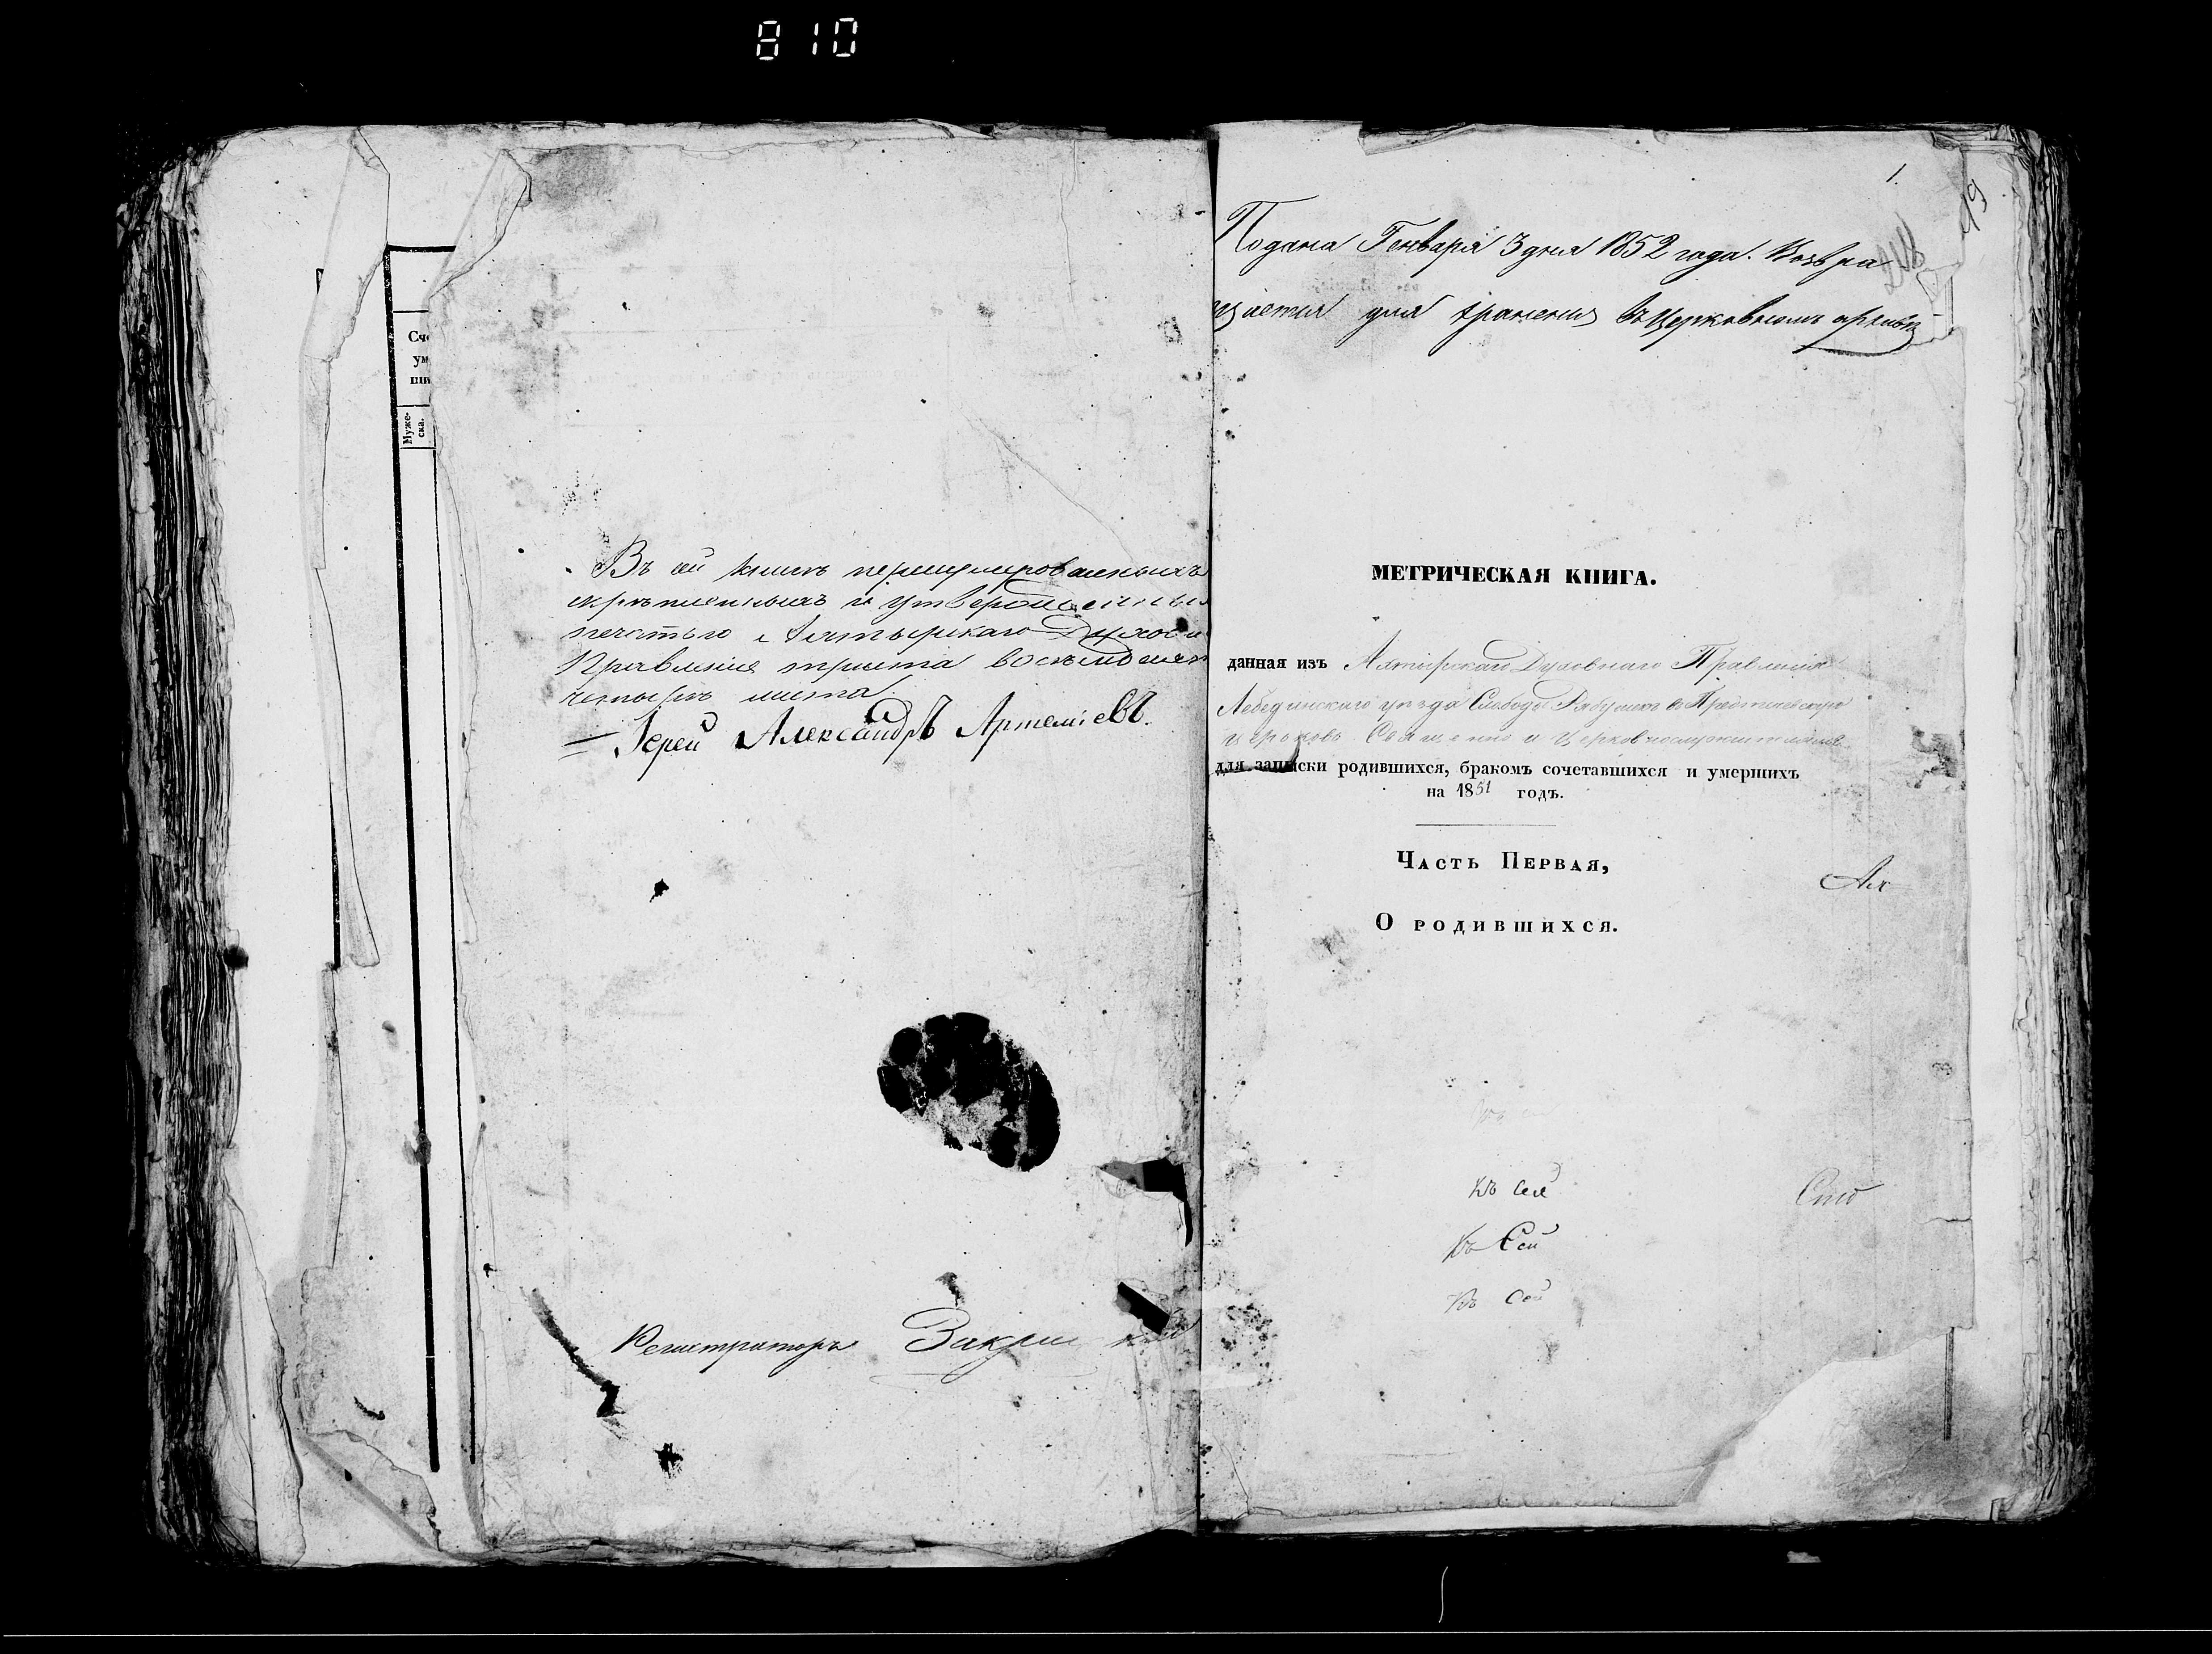 810
Счё
ум
ши
Муже-
ска.
Въ сей книгѣ перенумерованныхъ
скрѣпленныхъ и утвержденны
печатью Ахтырскаго Духовн
Правленія триста восемьдесят
четыре листа
Іерей Александръ Артеміевъ.
Регистраторъ
1.
19
Подана Генваря 3 дня 1852 года. Возвра
щается для храненія въ Церковномъ архивѣ
МЕТРИЧЕСКАЯ КНИГА.
данная изъ Ахтырскаго Духовнаго Правленія
Лебединскаго уѣзда Слободы Рябушекъ въ Предтечевскую
церковь Священно и церковнослужителямъ
для записки родившихся, бракомъ сочетавшихся и умершихъ
на 1851 годъ.
Часть Первая,
Ах
О родившихся.
Къ сей
Къ Сей
Къ сей